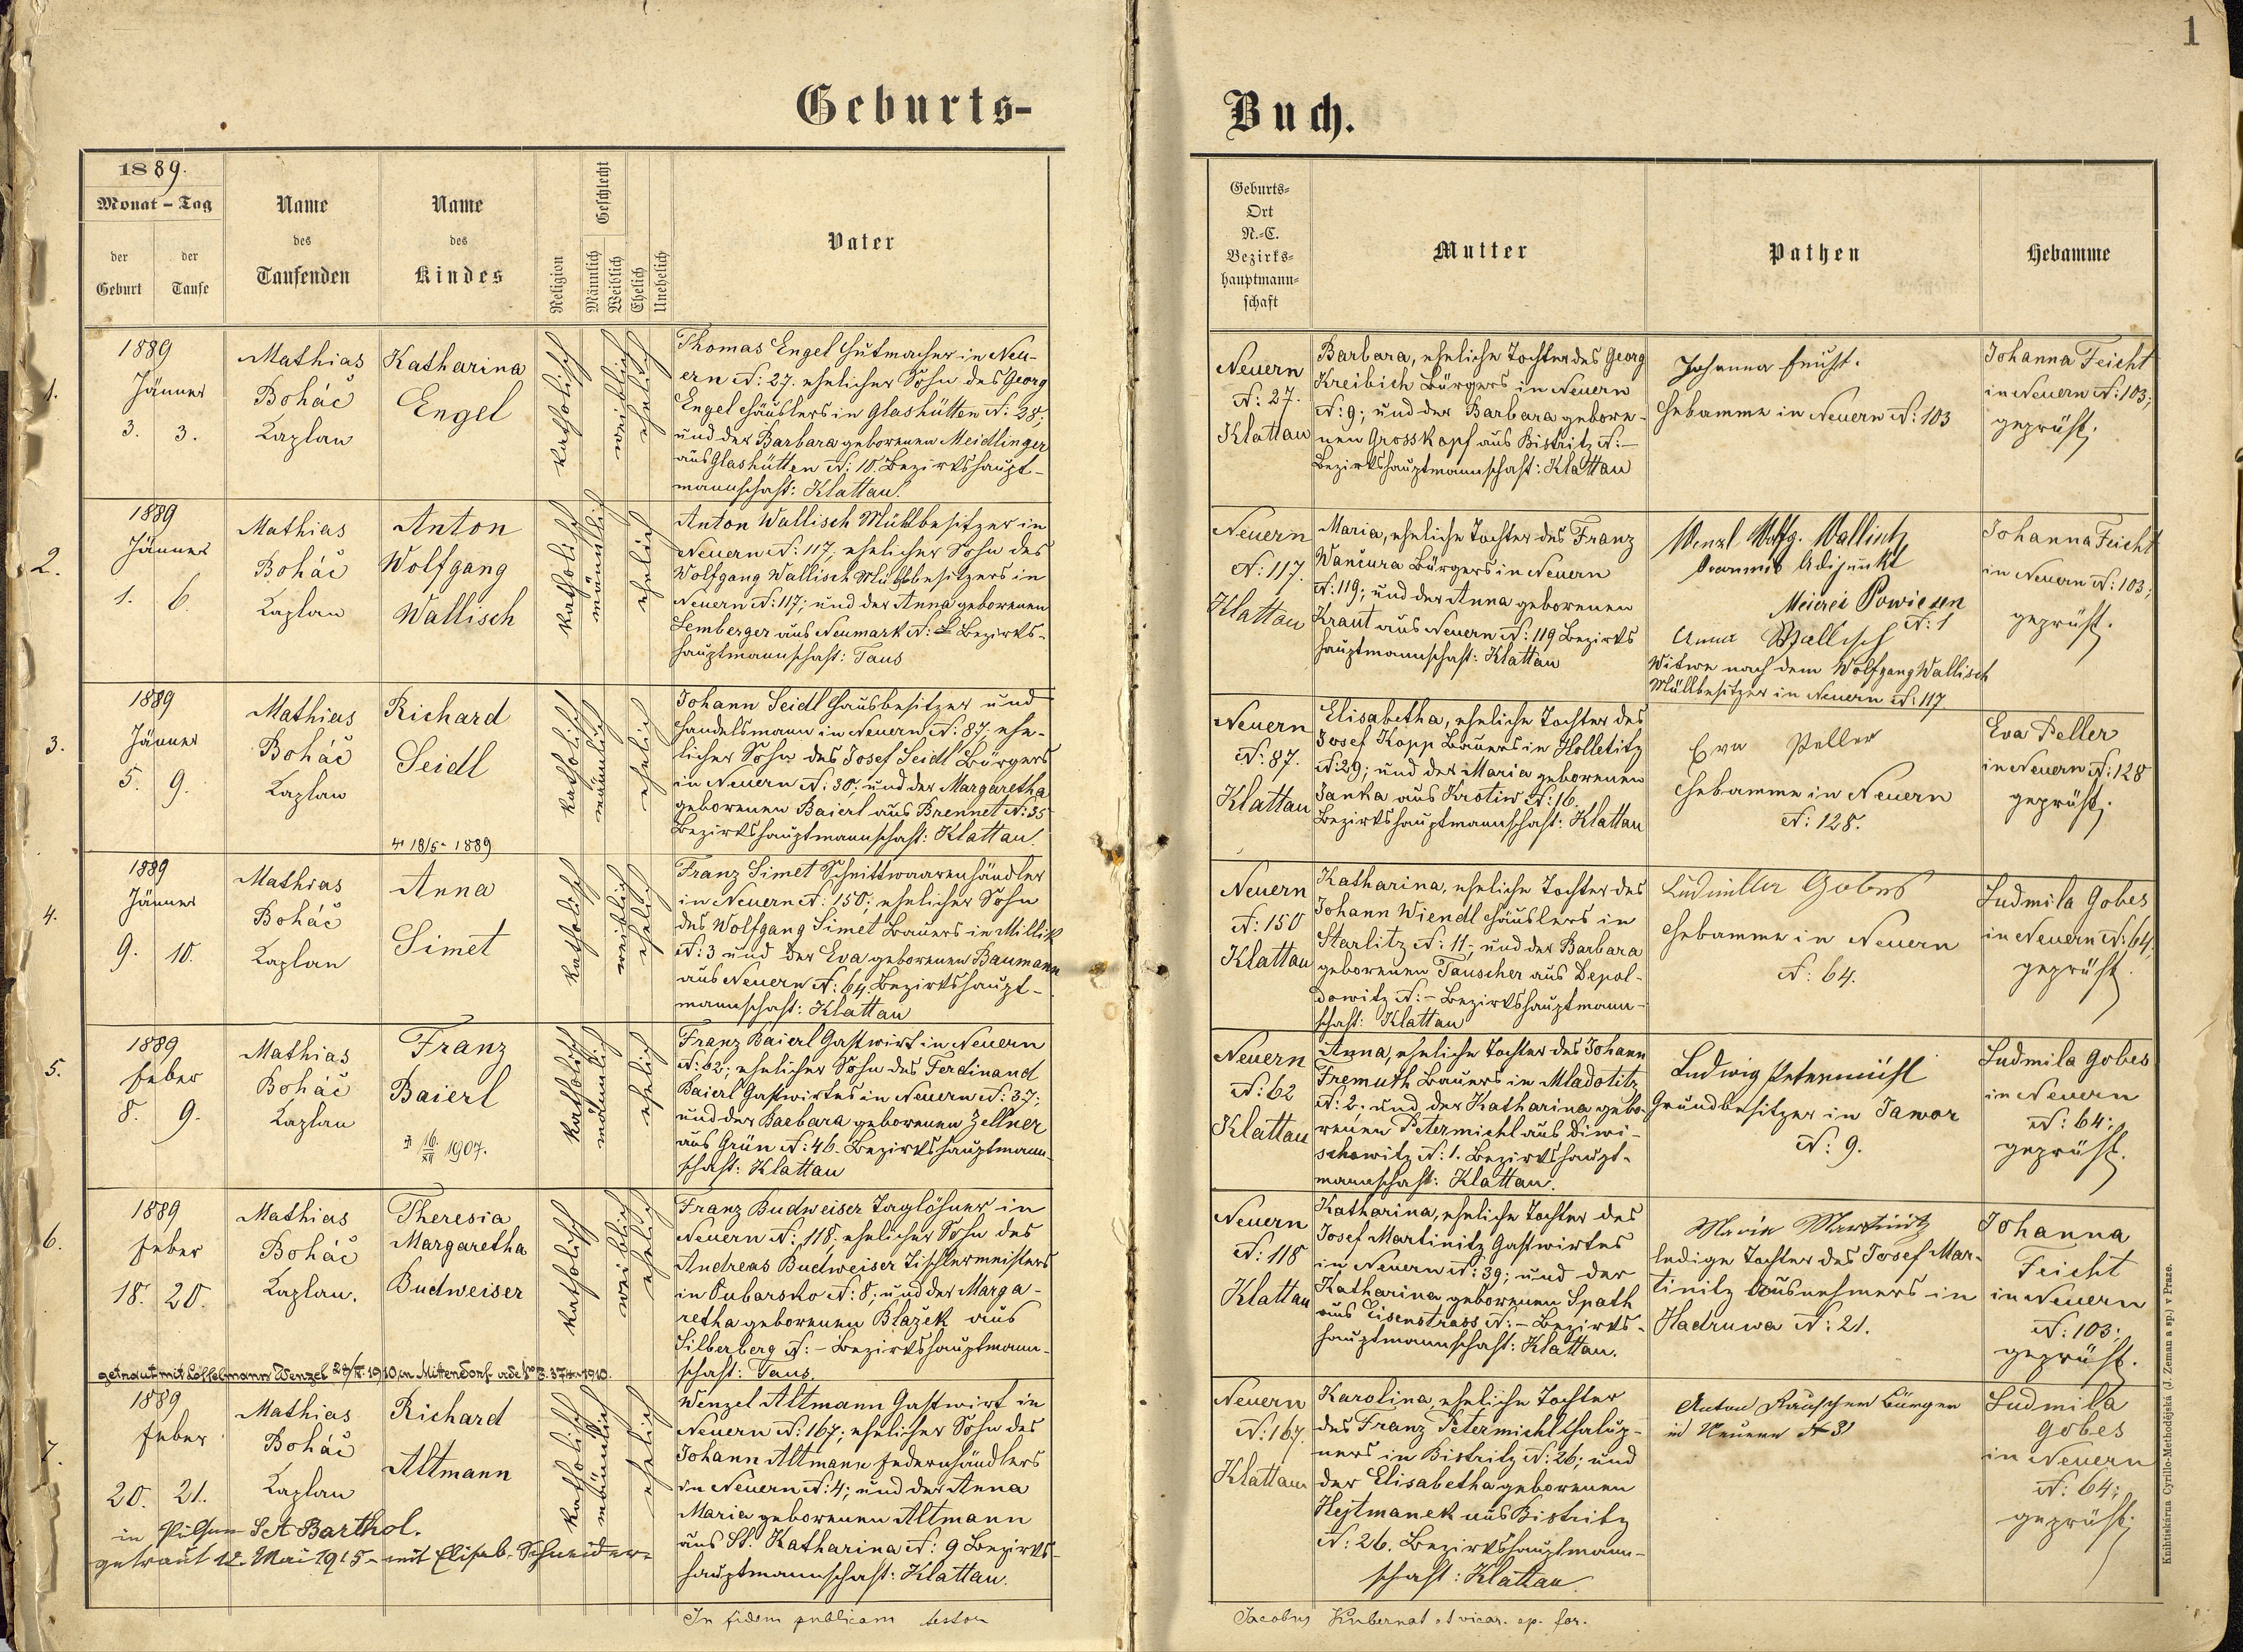 1
Geburts-
Buch.
1889.
Monat - Tag
der
Geburt
der
Taufe
Name
des
Taufenden
Name
des
Kindes
Religion
Geschlecht
Männlich
Weiblich
Ehelich
Unehelich
Vater
Geburts-
Ort
N.-C.
Bezirks-
hauptmann-
schaft
Mutter
Pathen
Hebamme
1.
1889
Jänner
3. 3.
Mathias
Boháč
Kaplan
Katharina
Engel
katholisch
weiblich
ehelich
Thomas Engel Hutmacher in Neu-
ern N: 27. ehelicher Sohn des Georg
Engel Häuslers in Glashütten N: 28;
und der Barbara geborenen Meidlinger
aus Glashütten N: 10. Bezirkshaupt-
mannschaft: Klattau.
Neuern
N: 27.
Klattau
Barbara, eheliche Tochter des Georg
Kreibich Bürgers in Neuern
N: 9; und der Barbara gebore-
nen Grosskopf aus Bistritz N: -
Bezirkshauptmannschaft: Klattau
Johanna Feicht.
Hebamme in Neuern N: 103
Johanna Feicht
in Neuern N: 103;
geprüft.
2.
1889
Jänner
1. 6.
Mathias
Boháč
Kaplan
Anton
Wolfgang
Wallisch
katholisch
männlich
ehelich
Anton Wallisch Mühlbesitzer in
Neuern N: 117; ehelicher Sohn des
Wolfgang Wallisch Mühlbesitzers in
Neuern N: 117; und der Anna geborenen
Lemberger aus Neumark N: Bezirks-
hauptmannschaft: Taus
Neuern
N: 117.
Klattau
Maria, eheliche Tochter des Franz
Waniura Bürgers in Neuern
N: 119; und der Anna geborenen
Kraut aus Neuern N: 119 Bezirks
hauptmannschaft: Klattau
Wenzl Wolfg. Wallisch
Adjunkt
Meierei
N: 1
Anna Wallisch
Witwe nach dem Wolfgang Wallisch
Mühlbesitzer in Neuern N: 117
Johanna Feicht
in Neuern N: 103;
geprüft.
3.
1889
Jänner
5. 9.
Mathias
Boháč
Kaplan
Richard
Seidl
18/5 - 1889
katholisch
männlich
ehelich
Johann Seidl Hausbesitzer und
Handelsmann in Neuern N: 87; ehe-
licher Sohn des Josef Seidl Bürgers
in Neuern N: 30; und der Margaretha
geborenen Baierl aus Brennet N: 35
Bezirkshauptmannschaft: Klattau.
Neuern
N: 87.
Klattau
Elisabetha, eheliche Tochter des
Josef Kopp Bauers in Holletitz
N: 29; und der Maria geborenen
Janka aus Krotiw N: 16.
Bezirkshauptmannschaft: Klattau
Eva Peller
Hebamme in Neuern
N: 128.
Eva Peller
in Neuern N: 128
geprüft.
4.
1889
Jänner
9. 10.
Mathias
Boháč
Kaplan
Anna
Simet
katholisch
weiblich
ehelich
Franz Simet Schnittwaarenhändler
in Neuern N: 150; ehelicher Sohn
des Wolfgang Simet Bauers in Millik
N: 3 und der Eva geborenen Baumann
aus Neuern N: 64. Bezirkshaupt-
mannschaft: Klattau
Neuern
N: 150
Klattau
Katharina, eheliche Tochter des
Johann Wiendl Häuslers in
Starlitz N: 11; und der Barbara
geborenen Tauscher aus Depol-
dowitz N: - Bezirkshauptmann-
schaft: Klattau
Ludmilla Gobes
Hebamme in Neuern
N: 64.
Ludmila Gobes
in Neuern N: 64,
geprüft.
5.
1889
Feber
8. 9.
Mathias
Boháč
Kaplan
Franz
Baierl
16/XII 1907.
katholisch
männlich
ehelich
Franz Baierl Gastwirt in Neuern
N: 62; ehelicher Sohn des Ferdinand
Baierl Gastwirtes in Neuern N: 37;
und der Barbara geborenen Zellner
aus Grün N: 46. Bezirkshauptmann-
schaft: Klattau
Neuern
N: 62
Klattau
Anna, eheliche Tochter des Johann
Fremuth Bauers in Mladotitz
N: 2. und der Katharina gebo-
renen Petermichl aus Diwi-
schowitz N: 1. Bezirkshaupt-
mannschaft: Klattau.
Ludwig Petermichl
Grundbesitzer in Tamor
N: 9.
Ludmila Gobes
in Neuern
N: 64;
geprüft.
6.
1889
Feber
18. 20.
Mathias
Boháč
Kaplan.
Theresia
Margaretha
Budweiser
katholisch
weiblich
ehelich
Franz Budweiser Taglöhner in
Neuern N: 118. ehelicher Sohn des
Andreas Budweiser Tischlermeisters
in Pubarsko N: 8; und der Marga-
retha geborenen Blažek aus
Silberberg N: - Bezirkshauptmann-
schaft: Taus.
getraut mit Löffelmann Wenzel 29/ 1910, in Mittendorf 374 1910.
Neuern
N: 118
Klattau
Katharina, eheliche Tochter des
Josef Martinitz Gastwirtes
in Neuern N: 39; und der
Katharina geborenen Spath
aus Eisenstrass N: - Bezirks-
hauptmannschaft: Klattau.
Maria Martinitz
ledige Tochter des Josef Mar-
tinitz Ausnehmers in
Hadruwa N: 21.
Johanna
Feicht
in Neuern
N: 103;
geprüft.
7.
1889
Feber
20. 21.
Mathias
Boháč
Kaplan
Richard
Altmann
katholisch
männlich
ehelich
Wenzel Altmann Gastwirt in
Neuern N: 167; ehelicher Sohn des
Johann Altmann Federnhändlers
in Neuern N: 4; und der Anna
Maria geborenen Altmann
aus St. Katharina N: 9 Bezirks-
hauptmannschaft: Klattau.
in Pilsen Barthol.
getraut 12. Mai 1915 - mit Elisab. Schneider
Neuern
N: 167.
Klattau
Karolina, eheliche Tochter
des Franz Petermichl Chalup-
ners in Bistritz N: 26; und
der Elisabetha geborenen
Hejtmanek aus Bistritz
N: 26. Bezirkshauptmann-
schaft: Klattau.
Anton Rauscher Bürger
in Neuern N 31
Ludmila
Gobes
in Neuern
N: 64;
geprüft.
In fidem publicam testor
Jacobus Kubernat vicar. ep. for.
Knihtiskárna Cyrillo-Methodějská (J. Zeman a sp.) v Praze.